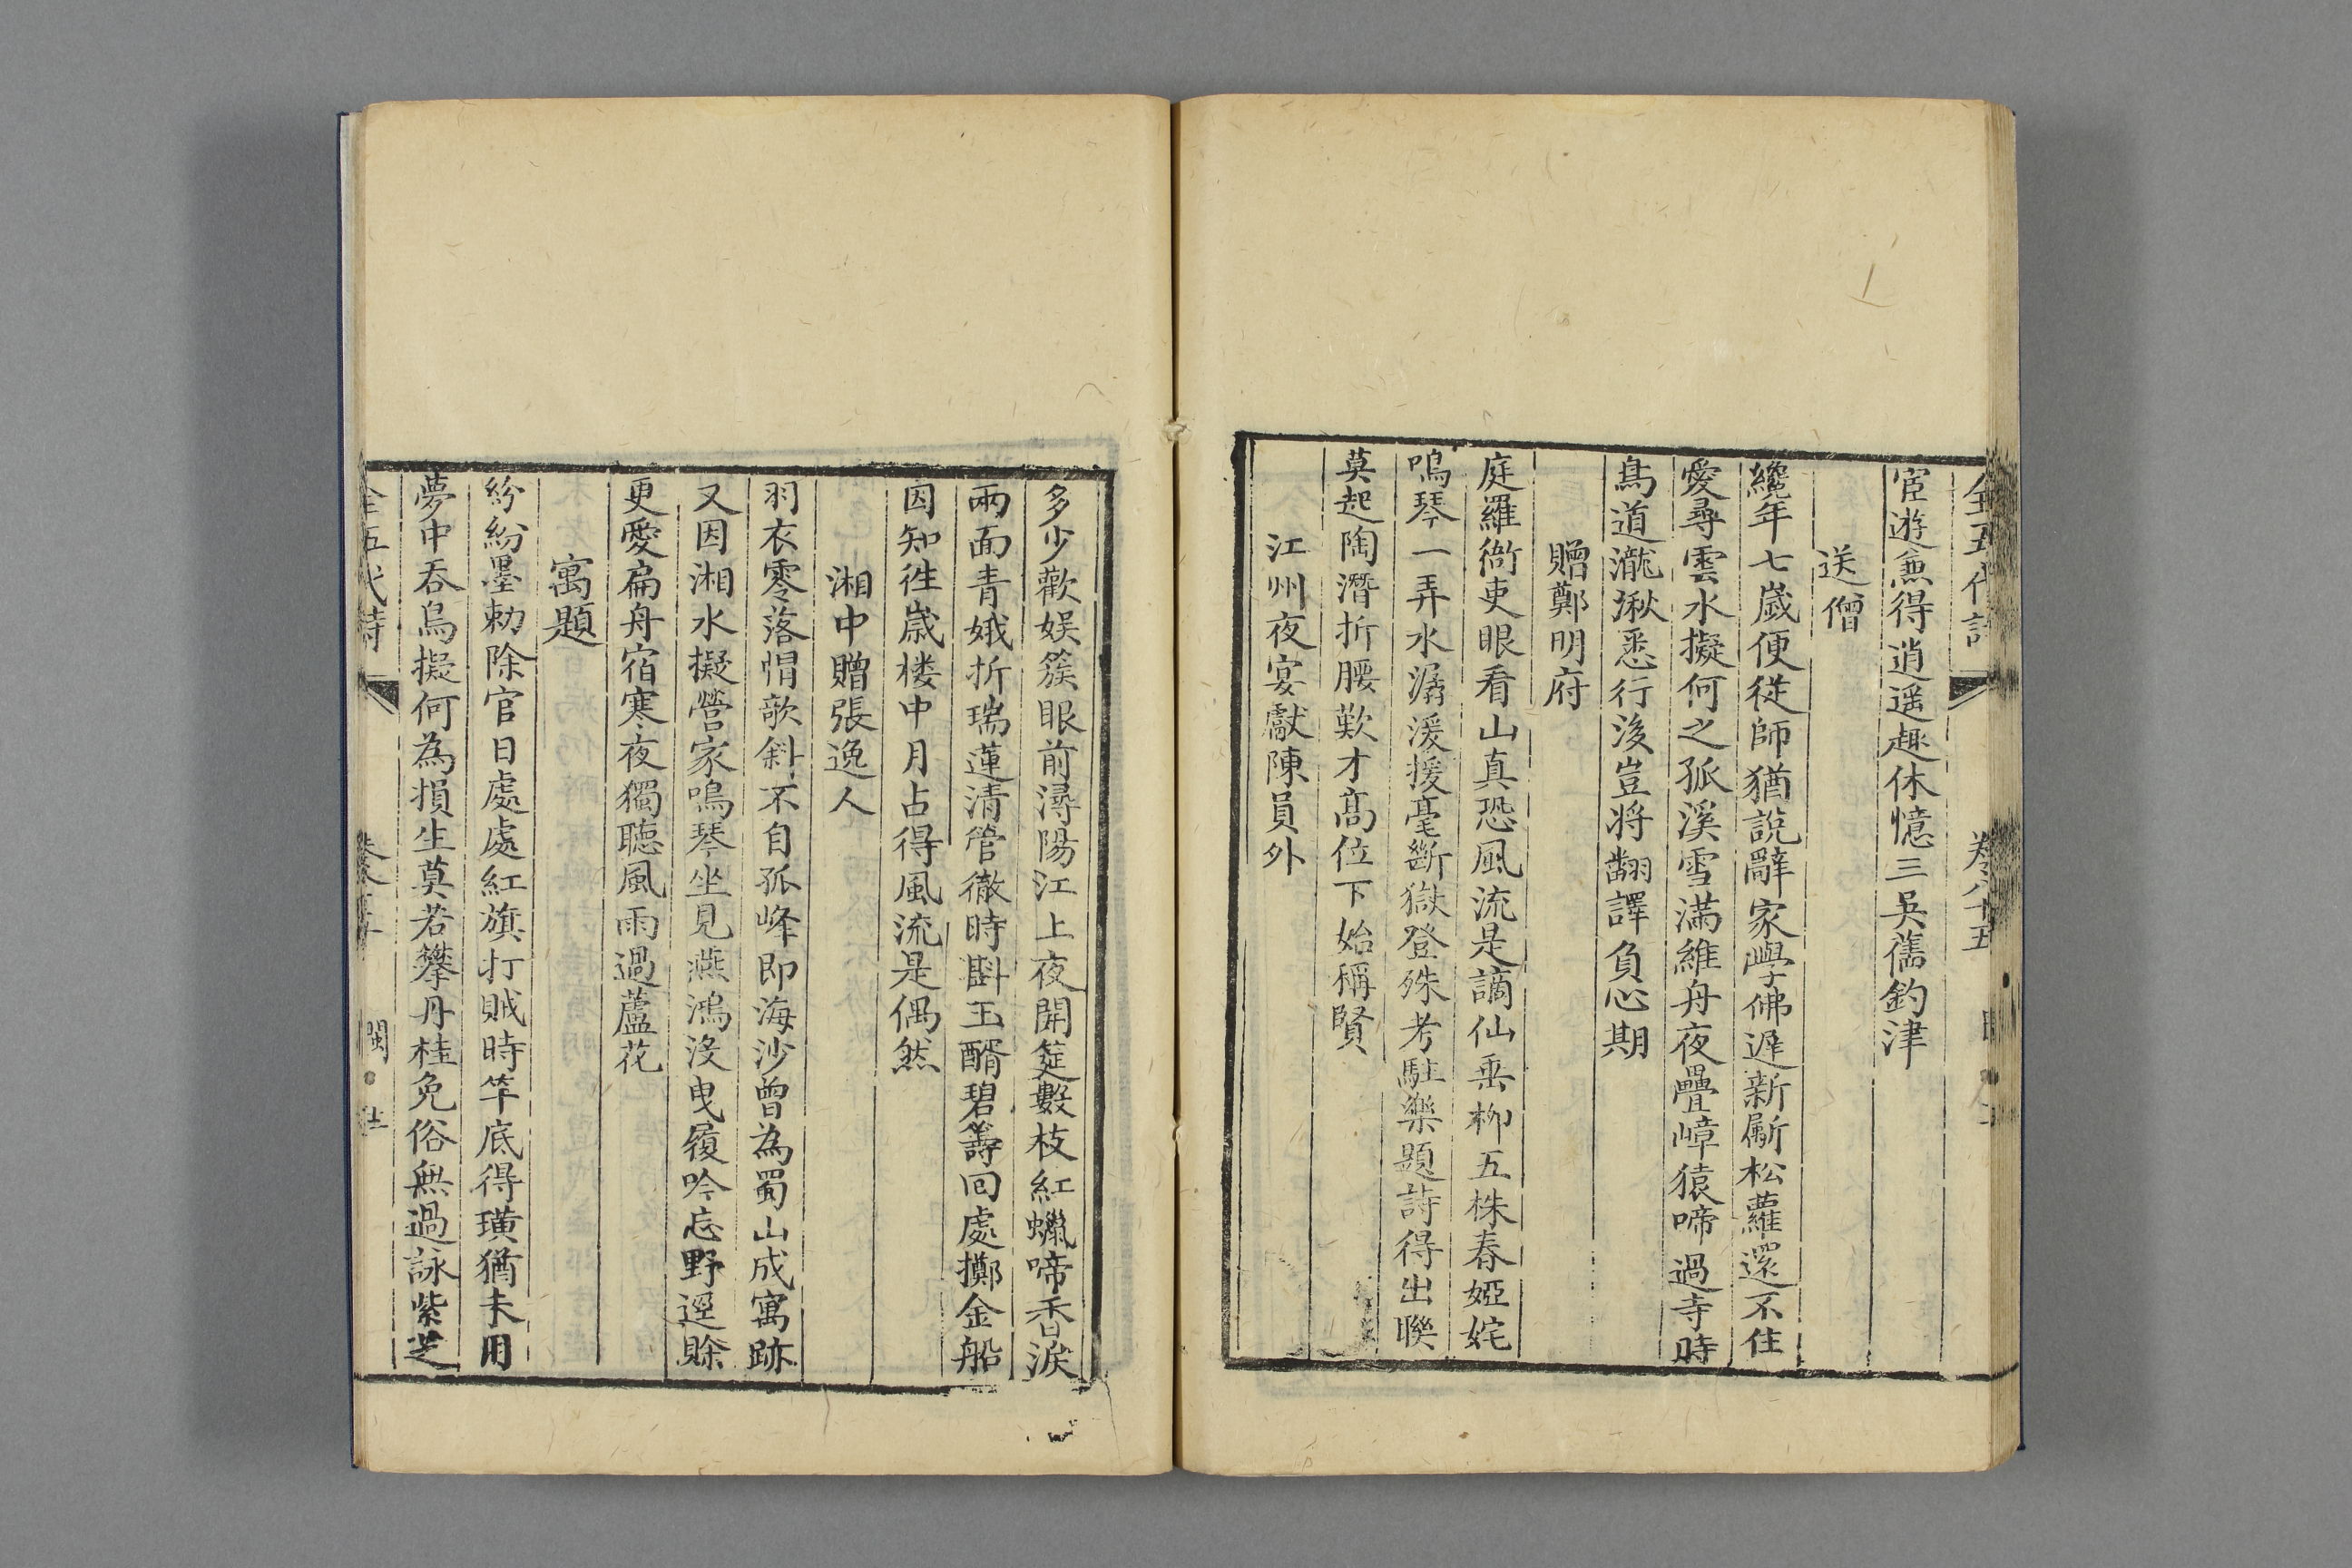 全五代詩 卷八十五
宦遊兼得逍遥趣休憶三吳舊釣津
送僧
纔年七歲便從師猶說辭家學佛遲新斸松蘿還不住
愛尋雲水擬何之孤溪雪滿維舟夜疊嶂猿啼過寺時
鳥道瀧湫悉行後豈将翻譯負心期
贈鄭明府
庭羅衙吏眼看山真恐風流是謫仙垂柳五株春婭姹
鳴琴一弄水潺湲援毫斷獄登殊考駐樂題詩得出聯
莫起陶潛折腰歎才高位下始稱賢
江州夜宴獻陳員外
多少歡娛簇眼前潯陽江上夜開筵數枝紅蠟啼香淚
兩面青娥折瑞蓮清管徹時斟玉醑碧籌回處擲金船
因知徃歲楼中月占得風流是偶然
湘中贈張逸人
羽衣零落帽欹斜不自孤峰即海沙曾為蜀山成寓跡
又因湘水擬營家鳴琴坐見燕鴻沒曳履吟忘野逕賒
更愛扁舟宿寒夜獨聽風雨過蘆花
寓題
紛紛墨勅除官日處處紅旗打賊時竿底得璜猶未用
夢中吞鳥擬何為損生莫若攀丹桂免俗無過詠紫芝
全五代詩 閩